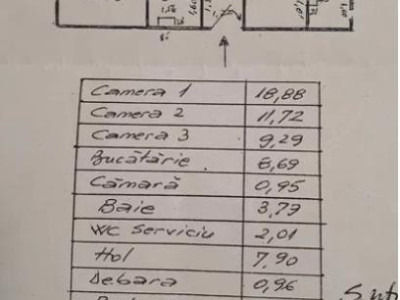 Camera 1 18,88
Camera 2 11,72
Camera 3 9,29
Bucătărie 8,69
Cămară 0,95
Baie 3,79
WC Serviciu 2,01
Hol 7,90
Debara 0,96